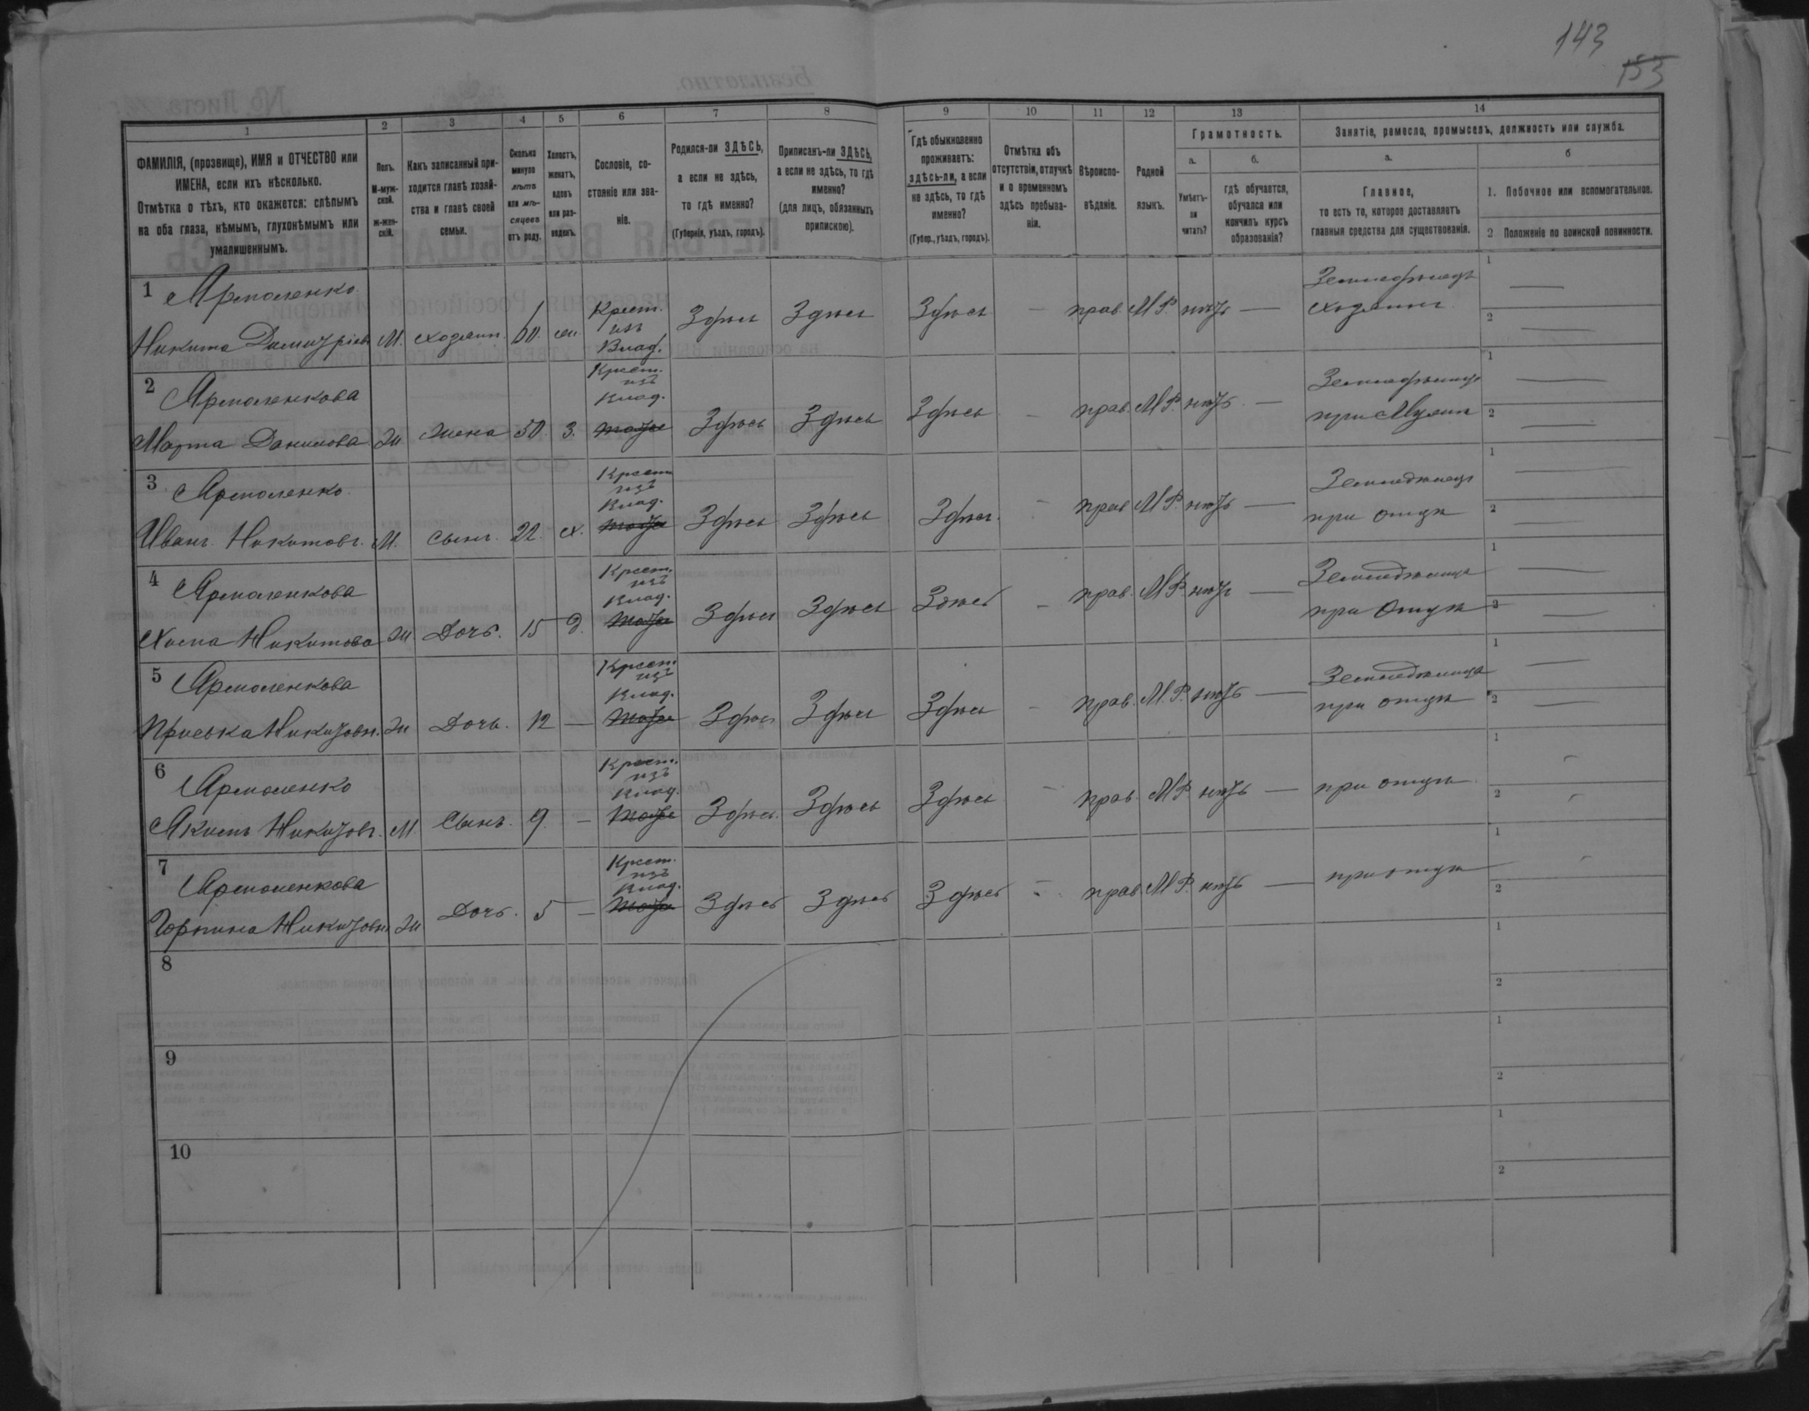 143
153
1
2
3
4
5
6
7
8
9
10
11
12
13
14
ФАМИЛІЯ, (прозвище), ИМЯ и ОТЧЕСТВО или
ИМЕНА, если ихъ нѣсколько.
Отмѣтка о тѣхъ, кто окажется: слѣпымъ
на оба глаза, нѣмымъ, глухонѣмымъ или
умалишеннымъ.
Полъ.
М-муж-
ской.
Ж-жен-
скій.
Какъ записанный при-
ходится главѣ хозяй-
ства и главѣ своей
семьи.
Сколько
минуло
лѣтъ
или мѣ-
сяцевъ
отъ роду.
Холостъ,
женатъ,
вдовъ
или раз-
веденъ.
Сословіе, со-
стояніе или зва-
ніе.
Родился-ли ЗДѢСЬ,
а если не здѣсь,
то гдѣ именно?
(Губернія, уѣздъ, городъ).
Приписанъ-ли ЗДѢСЬ,
а если не здѣсь, то гдѣ
именно?
(для лицъ, обязанныхъ
припискою).
Гдѣ обыкновенно
проживаетъ:
здѣсь-ли, а если
не здѣсь, то гдѣ
именно?
(Губер., уѣздъ, городъ).
Отмѣтка объ
отсутствіи, отлучкѣ
и о временномъ
здѣсь пребыва-
ніи.
Вѣроиспо-
вѣданіе.
Родной
языкъ.
Грамотность.
а.
Умѣетъ-
ли
читать?
б.
гдѣ обучается,
обучался или
кончилъ курсъ
образованія?
Занятіе, ремесло, промыселъ, должность или служба.
а.
Главное,
то есть то, которое доставляетъ
главныя средства для существованія.
б
1. Побочное или вспомогательное.
2 Положеніе по воинской повинности.
1 Ярмоленко
Никита М. хозяин 60 Крест. изъ Влад. Здѣсь Здѣсь Здѣсь — прав. М.Р. нѣтъ — хозяинъ
1 —
2 —
2 Ярмоленкова
Марта Данилова ж жена 50 з. Крест. изъ Влад. Здѣсь Здѣсь Здѣсь — прав. М.Р. нѣтъ — при
1 —
2 —
3 Ярмоленко
Иванъ Никитовъ М. сынъ. 22. х. Крест. изъ Влад. Здѣсь Здѣсь Здѣсь — прав М.Р. нѣтъ — при отцѣ
1 —
2 —
4 Ярмоленкова
Никитова ж Дочь. 15 д. Крест. изъ Влад. Здѣсь Здѣсь Здѣсь — прав. М.Р. нѣтъ — при отцѣ
1 —
2 —
5 Ярмоленкова
Приська ж Дочь. 12 — Крест. изъ Влад. Здѣсь Здѣсь Здѣсь — прав. М.Р. нѣтъ — при отцѣ
1 —
2 —
6 Ярмоленко
Якимъ Никитовъ М Сынъ. 9. — Крест. изъ Влад. Здѣсь Здѣсь Здѣсь — прав. М.Р. нѣтъ — при отцѣ
1 —
2 —
7 Ярмоленкова
Горпина ж Дочь. 5 — Крест. изъ Влад. Здѣсь Здѣсь Здѣсь — прав. М.Р. нѣтъ — при отцѣ
1 —
2
8
1
2
9
1
2
10
1
2